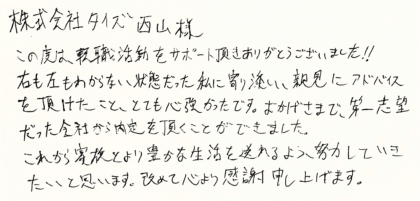 株式会社タイズ 西山様
この度は、転職活動をサポート頂きありがとうございました!!
右も左もわからない状態だった私に寄り添い、親身にアドバイス
を頂けたこと、とても心強かったです。おかげさまで、第一志望
だった会社から内定を頂くことができました。
これから家族とより豊かな生活を送れるよう、努力していき
たいと思います。改めて心より感謝申し上げます。